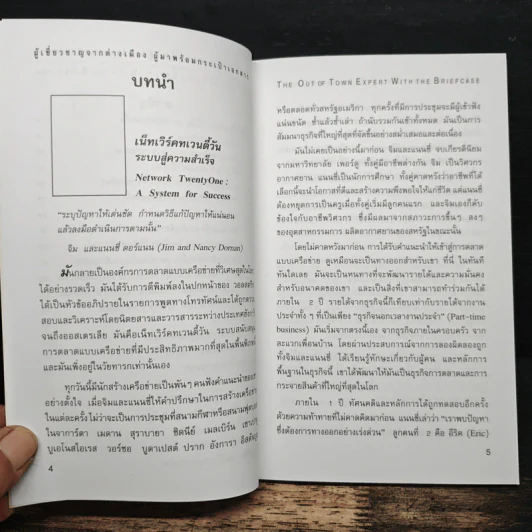 ผู้เชี่ยวชาญจากต่างเมือง ผู้มาพร้อมกระเป๋าเอกสาร
บทนำ
เน็ทเวิร์คทเวนตี้วัน
ระบบสู่ความสำเร็จ
Network TwentyOne :
A System for Success
"ระบุปัญหาให้เด่นชัด กำหนดวิธีแก้ปัญหาให้แน่นอน
แล้วลงมือดำเนินการตามนั้น"
จิม และแนนซี่ ดอร์แนน (Jim and Nancy Dornan)
มันกลายเป็นองค์กรการตลาดแบบเครือข่ายที่วิเศษสุดในโลก
ได้อย่างรวดเร็ว มันได้รับการตีพิมพ์ลงในปกหน้าของ วอลสตรี
ได้เป็นหัวข้ออภิปรายในรายการพูดทางโทรทัศน์และได้ถูกตรวจ
สอบและวิเคราะห์โดยนิตยสารและวารสารระหว่างประเทศ
จนถึงออสเตรเลีย มันคือเน็ทเวิร์คทเวนตี้วัน ระบบสนับสนุน
การตลาดแบบเครือข่ายที่มีประสิทธิภาพมากที่สุดในพื้นพิภพ
และมันเพิ่งอยู่ในวัยทารกเท่านั้นเอง
ทุกวันนี้มีนักสร้างเครือข่ายเป็นพันๆ คนฟังคำแนะนำของ
อย่างตั้งใจ เมื่อจิมและแนนซี่ให้คำปรึกษาในการสร้างเครือข่าย
ในแต่ละครั้ง ไม่ว่าจะเป็นการประชุมที่สนามกีฬาหรือสนามฟุตบอล
ในจาการ์ตา เมดาน สุราบายา ซิดนีย์ เมลเบิร์น
บูเอโนสไอเรส วอร์ซอ บูดาเปสต์ ปราก อังการา อิสตันบูล
4
THE OUT OF TOWN EXPERT WITH THE BRIEFCASE
หรือตลอดทั่วสหรัฐอเมริกา ทุกครั้งที่มีการประชุมจะมีผู้เข้าฟัง
แน่นขนัด ซ้ำแล้วซ้ำเล่า ถ้านับรวมกันเข้าทั้งหมด มันเป็นการ
สัมมนาธุรกิจที่ใหญ่ที่สุดที่จัดขึ้นอย่างสม่ำเสมอและต่อเนื่อง
มันไม่เคยเป็นอย่างนี้มาก่อน จิมและแนนซี่ จบเกียรตินิยม
จากมหาวิทยาลัย เพอร์ดู ทั้งคู่มีอาชีพต่างกัน จิม เป็นวิศวกร
อากาศยาน แนนซี่เป็นนักการศึกษา ทั้งคู่คาดหวังว่าอาชีพที่ได้
เลือกนี้จะนำโอกาสที่ดีและสร้างความพึงพอใจให้แก่ชีวิต แต่แนนซี่
ต้องหยุดการเป็นครูเมื่อทั้งคู่เริ่มมีลูกคนแรก และจิมเองก็คับ
ข้องใจกับอาชีพวิศวกร ซึ่งมีผลมาจากสภาวะการขึ้นๆ ลงๆ
ของอุตสาหกรรมการ ผลิตอากาศยานของสหรัฐในขณะนั้น
โดยไม่คาดหวังมาก่อน การได้รับคำแนะนำให้เข้าสู่การตลาด
แบบเครือข่าย ดูเหมือนจะเป็นทางออกสำหรับเขา ที่นี่ ในทันที
ทันใดเลย มันจะเป็นหนทางที่จะพัฒนารายได้และความมั่นคง
สำหรับอนาคตของเขา และเป็นสิ่งที่เขาสามารถทำร่วมกันได้
ภายใน 2 ปี รายได้จากธุรกิจนี้ก็เทียบเท่ากับรายได้จากงาน
ประจำทั้ง ๆ ที่เป็นเพียง "ธุรกิจนอกเวลางานประจำ" (Part-time
business) มันเริ่มจากตรงนี้เอง จากธุรกิจภายในครอบครัว จาก
ละแวกเพื่อนบ้าน โดยผ่านประสบการณ์จากการลองผิดลองถูก
ทั้งจิมและแนนซี่ ได้เรียนรู้ทักษะเกี่ยวกับผู้คน และหลักการ
พื้นฐานในธุรกิจนี้ เขาได้พัฒนาให้มันเป็นธุรกิจการตลาดและการ
กระจายสินค้าที่ใหญ่ที่สุดในโลก
ภายใน 1 ปี ทัศนคติและหลักการได้ถูกทดสอบอีกครั้ง
ด้วยความท้าทายที่ไม่คาดคิดมาก่อน แนนซี่เล่าว่า "เราพบปัญหา
ซึ่งต้องการทางออกอย่างเร่งด่วน" ลูกคนที่ 2 คือ อีริค (Eric)
5